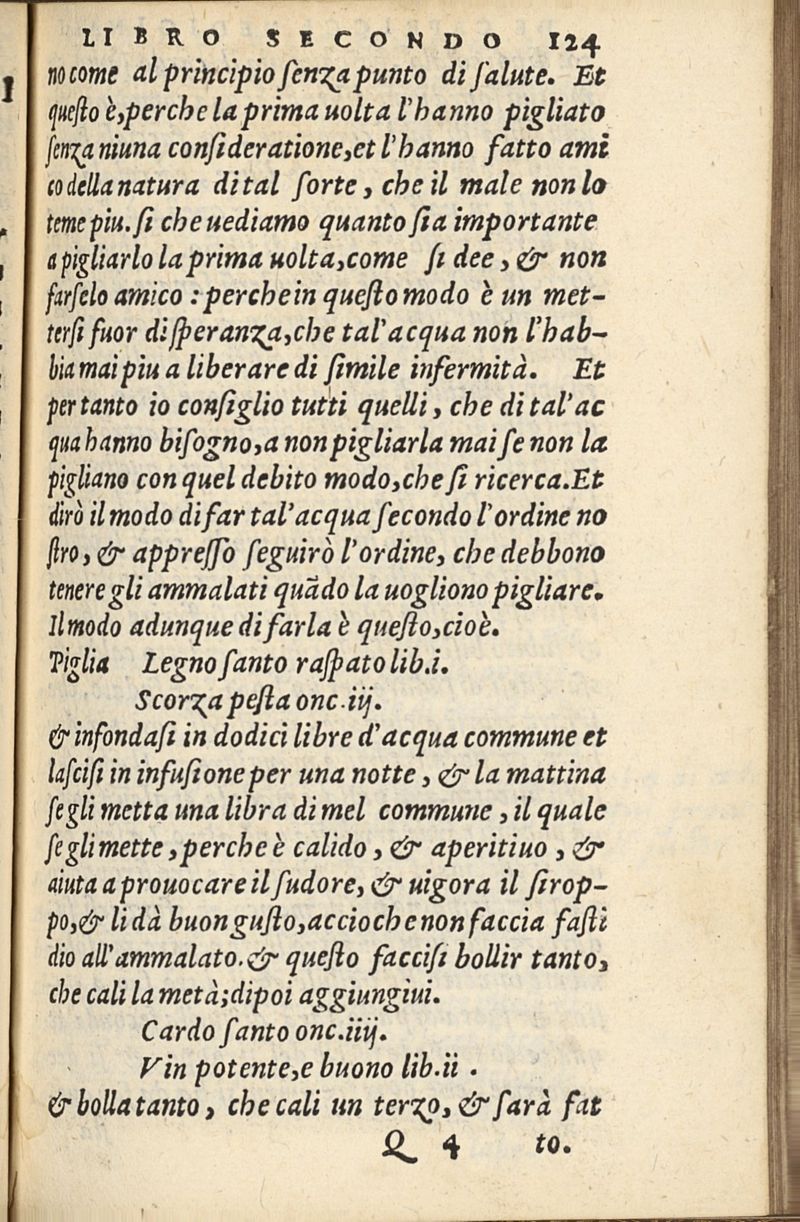 LIBRO SECONDO 124
no come al principio ſenza punto di ſalute. Et
queſto è, perche la prima uolta l'hanno pigliato
ſenza niuna conſideratione, et l'hanno fatto ami
co della natura di tal ſorte, che il male non lo
teme piu. ſi che uediamo quanto ſia importante
a pigliarlo la prima uolta, come ſi dee, & non
farſelo amico : perche in queſto modo è un met-
terſi fuor diſperanza, che tal'acqua non l'hab-
bia mai piu a liberare di ſimile infermità. Et
per tanto io conſiglio tutti quelli, che di tal'ac
qua hanno biſogno, a non pigliarla mai ſe non la
pigliano con quel debito modo, che ſi ricerca. Et
dirò il modo di far tal'acqua ſecondo l'ordine no
ſtro, & appreſſo ſeguirò l'ordine, che debbono
tenere gli ammalati quãdo la uogliono pigliare.
Il modo adunque di farla è queſto, cioè.
Piglia Legno ſanto raſpato lib.i.
Scorza peſta onc.iij.
& infondaſi in dodici libre d'acqua commune et
laſciſi in infuſione per una notte, & la mattina
ſe gli metta una libra di mel commune, il quale
ſe gli mette, perche è calido, & aperitiuo, &
aiuta a prouocare il ſudore, & uigora il ſirop-
po, & li dà buon guſto, accioche non faccia faſti
dio all'ammalato. & queſto facciſi bollir tanto,
che cali la metà; dipoi aggiungiui.
Cardo ſanto onc.iiij.
Vin potente, e buono lib.ii .
& bolla tanto, che cali un terzo, & ſarà fat
Q 4 to.